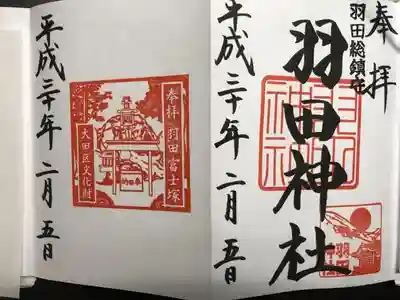 奉拝
羽田総鎮守
羽田神社
平成三十年二月五日
羽田神社
羽田
奉拝 羽田富士塚
大田区文化財
平成三十年二月五日